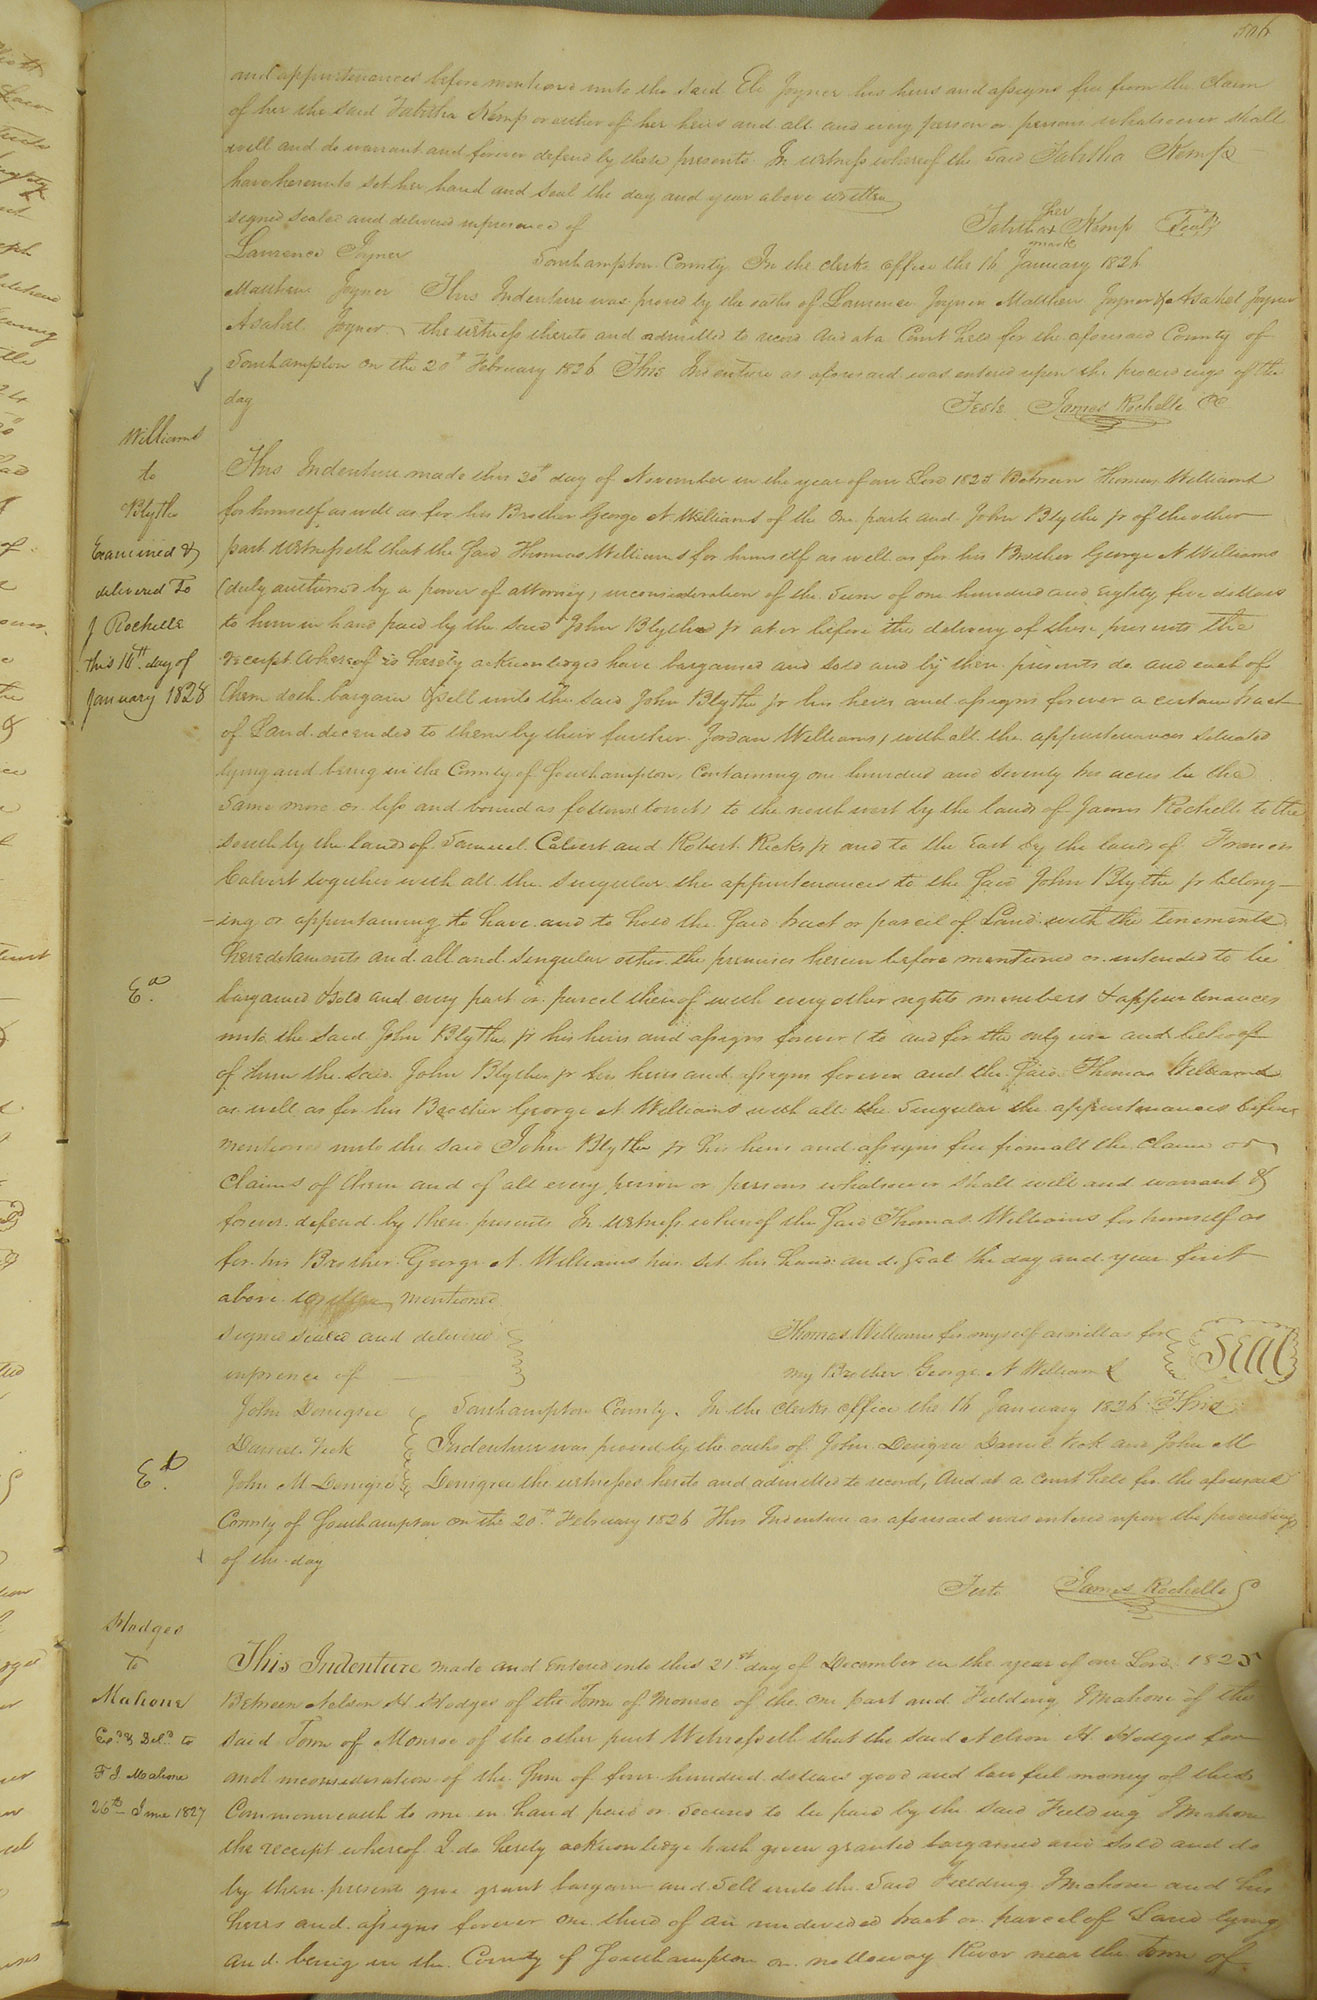 506
and appurtenances before mentioned unto the said Eli Joyner his heirs and assigns free from the claim
of her the said Tabitha Kemp or either of her heirs and all and every person or persons whatsoever shall
will and do warrant and forever defend by these presents In witness whereof the said Tabitha Kemp
have hereunto set her hand and seal the day and year above written
signed sealed and delivered in presence of
her
Tabitha x Kemp Seal
mark
Lawrence Joyner Southampton County In the clerks office the 16 January 1826
Matthew Joyner This Indenture was proved by the oaths of Lawrence Joyner Matthew Joyner & Asahel Joyner
Asahel Joyner the witness thereto and admitted to record And at a Court held for the aforesaid County of
Southampton on the 20th February 1826 This Indenture as aforesaid was entered upon the proceedings of the
day
Teste James Rochelle CC
Williams
to
Blythe
Examined &
delivered To
J Rochelle
this 16th day of
January 1828
This Indenture made this 30th day of November in the year of our Lord 1825 Between Thomas Williams
for himself as well as for his Brother George N Williams of the one part and John Blythe jr of the other
part Witnesseth that the said Thomas Williams for himself as well as for his Brother George N Williams
(duly authored by a power of attorney) in consideration of the sum of one hundred and eighty five dollars
to him in hand paid by the said John Blythe jr at or before the delivery of these presents the
receipt whereof is hereby acknowledged have bargained and sold and by these presents do and each of
them doth bargain & sell unto the said John Blythe jr his heirs and assigns forever a certain tract
of Land decended to them by their further Jordan Williams, with all the appurtenances situated
lying and being in the County of Southampton, Containing one hundred and seventy two acres be the
same more or less and bound as follows (towit) to the north west by the lands of James Rochelle to the
south by the lands of Samuel Calvert and Robert Ricks jr and to the East by the lands of Frances
Calvert together with all the singular the appurtenances to the said John Blythe jr belong-
-ing or appurtaining to have and to hold the said tract or parcel of Land with the tenements
heredetaments and all and singular other the premises herein before mentioned or intended to be
Ed.
bargained & sold and every part or parcel thereof with every other rights members & appurtenances
unto the said John Blythe jr his heirs and assigns forever (to and for the only use and behoof
of him the said John Blythe jr his heirs and assigns forever and the said Thomas Williams
as well as for his Brother George N Williams with all the singular the appurtenances before
mentioned unto the said John Blythe jr his heirs and assigns free from all the claim or
claims of them and of all every person or persons whatsoever shall will and warrant &
forever defend by these presents In witness whereof the said Thomas Williams for himself as
for his Brother George N Williams has set his hand and seal the day and year first
above mentioned
signed sealed and delivered
in presence of
Thomas Williams for myself as well as for
my Brother George N Williams
Seal
John Denigree Southampton County. In the clerks office the 16 January 1826 This
Daniel Vick Indenture was proved by the oaths of John Denigree Daniel Vick and John M
Ed.
John M Denigree Denigree the witnesses hereto and admitted to record, And at a court held for the aforesaid
County of Southampton on the 20th February 1826 This Indenture as aforesaid was entered upon the proceedings
of the day
Teste James Rochelle
Hodges
to
Mahone
Exd. & Deld. to
F J Mahone
26th June 1827
This Indenture made and Entered into this 21st day of December in the year of our Lord 1825
Between Nelson H Hodges of the Town of Monroe of the one part and Fielding J Mahone of the
said Town of Monroe of the other part Witnesseth that the said Nelson H. Hodges for
and in consideration of the sum of four hundred dollars good and lawful money of this
Commonwealth to me in hand paid or secured to be paid by the said Fielding J Mahone
the receipt whereof I do hereby acknowledge hath given granted bargained and sold and do
by these presents give grant bargain and sell unto the said Fielding J Mahone and his
heirs and assigns forever one third of an undivided tract or parcel of Land lying
and being in the County of Southampton on nottoway River near the Town of